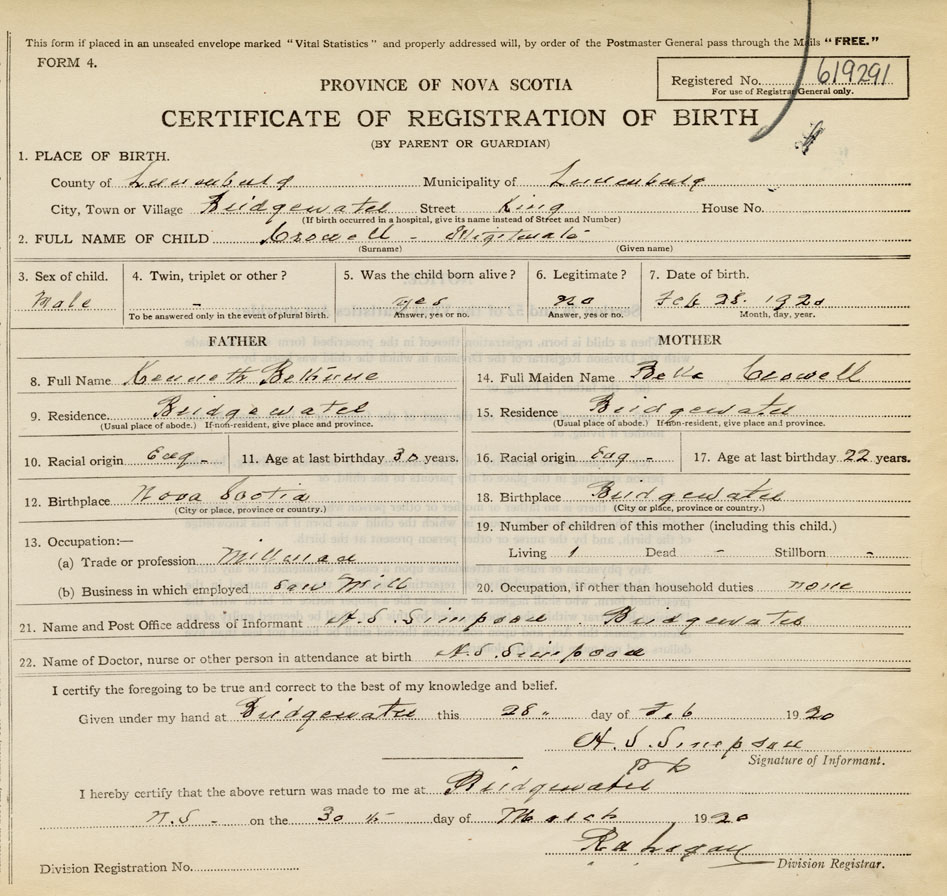 This form if placed in an unsealed envelope marked "Vital Statistics" and properly addressed will, by order of the Postmaster General pass through the Mails "FREE."
FORM 4.
Registered No. 619291
For use of Registrar General only.
PROVINCE OF NOVA SCOTIA
CERTIFICATE OF REGISTRATION OF BIRTH
(BY PARENT OR GUARDIAN)
1. PLACE OF BIRTH.
County of Lunenburg Municipality of Lunenburg
City, Town or Village Bridgewater Street King House No.
(If birth occurred in a hospital, give its name instead of Street and Number)
2. FULL NAME OF CHILD Crowell -
(Surname) (Given name)
3. Sex of child. 4. Twin, triplet or other? 5. Was the child born alive? 6. Legitimate? 7. Date of birth.
Male - yes no Feb 28. 1920
To be answered only in the event of plural birth. Answer, yes or no. Answer, yes or no. Month, day, year.
FATHER MOTHER
8. Full Name Kenneth 14. Full Maiden Name Bella Crowell
9. Residence Bridgewater 15. Residence Bridgewater
(Usual place of abode.) If non-resident, give place and province. (Usual place of abode.) If non-resident, give place and province.
10. Racial origin Eng - 11. Age at last birthday 30 years. 16. Racial origin Eng - 17. Age at last birthday 22 years.
12. Birthplace Nova Scotia 18. Birthplace Bridgewater
(City or place, province or country.) (City or place, province or country.)
19. Number of children of this mother (including this child.)
13. Occupation:—
Living 1 Dead - Stillborn -
(a) Trade or profession Millman
(b) Business in which employed Saw Mill 20. Occupation, if other than household duties none
21. Name and Post Office address of Informant H. S. Simpson . Bridgewater
22. Name of Doctor, nurse or other person in attendance at birth H. S. Simpson
I certify the foregoing to be true and correct to the best of my knowledge and belief.
Given under my hand at Bridgewater this 28 " day of Feb 1920
H. S. Simpson
Signature of Informant.
I hereby certify that the above return was made to me at Bridgewater
N.S - on the 30 day of March 1920
Division Registrar.
Division Registration No.